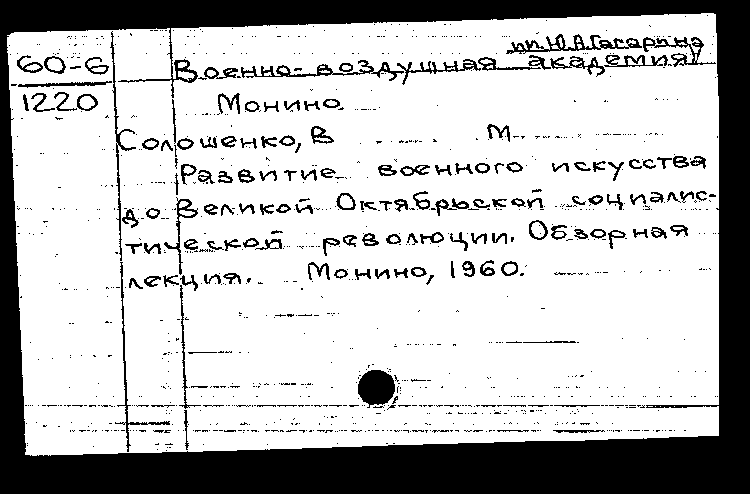 60-6
1220
им. Ю.А. Гагарина
Военно-воздушная академия
Монино.
Солошенко, В М
Развитие военного искусства
до Великой Октябрьской социалис-
тической революции. Обзорная
лекция. Монино, 1960.